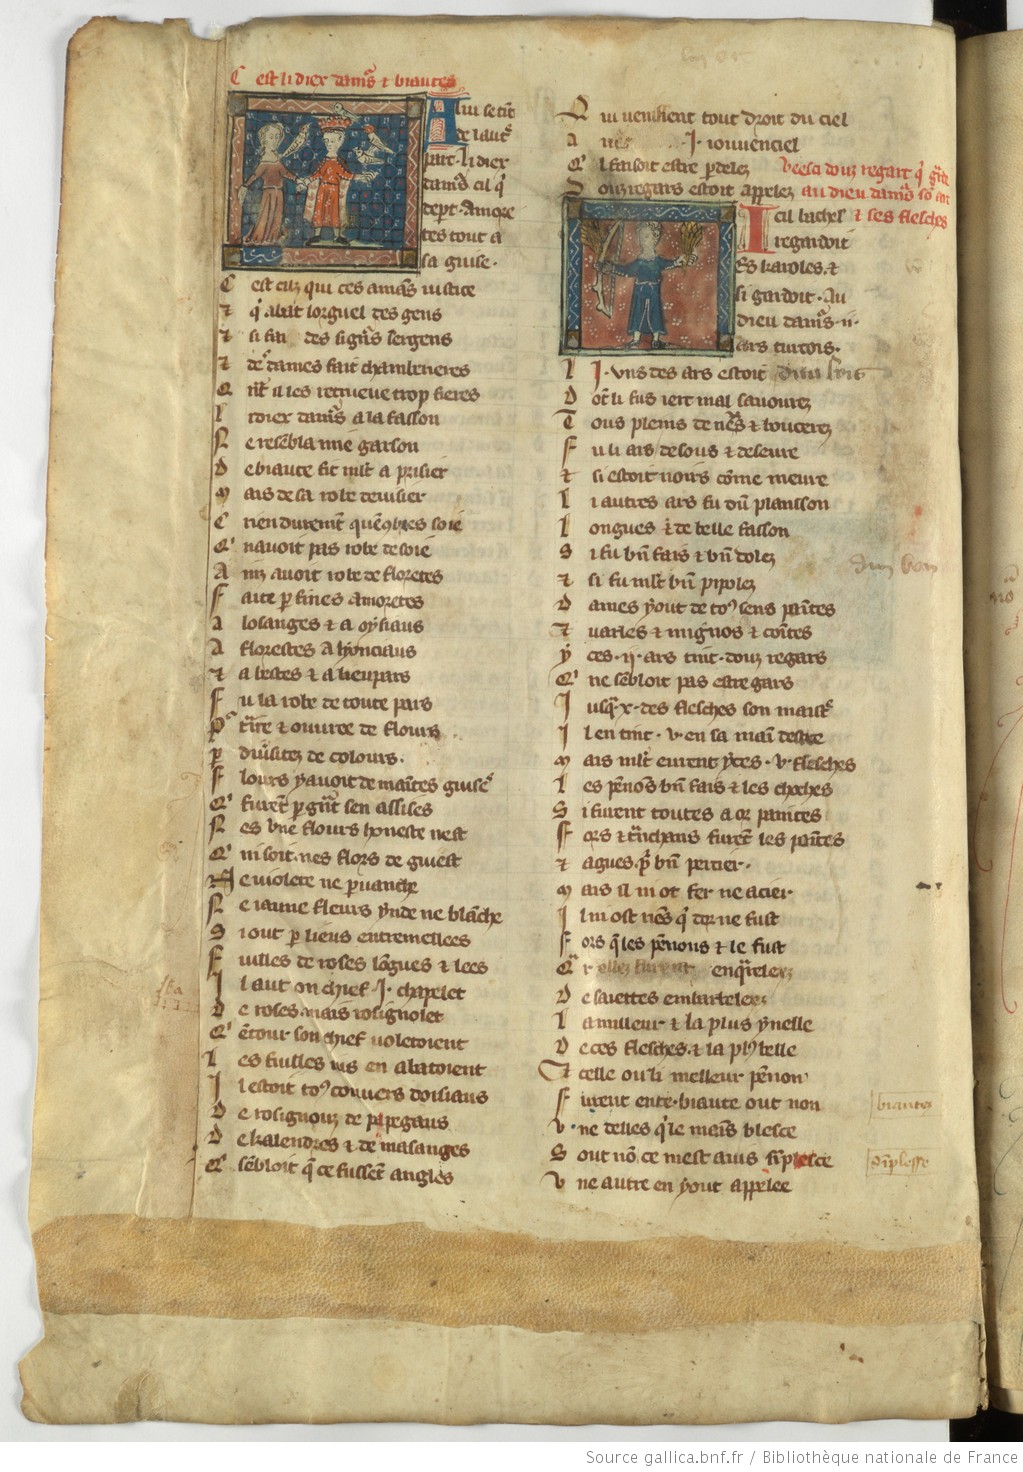 C est li diex damors & biautes
A lui se tint
de lautre
part · li diex
damors cil qi
depert · amore
tes tout a
sa guise ·
C est cilz qui ces amans iustice
& qi abat lorguel des gens
& si fai des signors sergens
& des dames fait chamberieres
Q nt il les recueuve trop fieres
L i diex damors a la fasson
N e resembla mie garson
D e biaute fit mlt a prisier
M ais de sa robe deuisier
C rien durement quenconbres soie
Q navoit pas robe de soie
A ins avoit robe de floretes
F aite p fines amoretes
A losanges & a oysiaus
A florestes a lyonciaus
& a bestes & a lieupars
F u la robe de toute pars
P ortraite & ouuree de flours
p diuersitez de colours ·
F lours y auoit de maintes guises
Q furent p grant sen assises
N es vne flours honeste nest
Q ni soit · nes flors de genest
N e violete ne peruanche
N e iaune fleurs ynde ne blanche
S i out p lieus entremellees
F uilles de roses longues & lees
I l aut on chief · I · chapelet
D e roses mais rosignolet
Q entour son chief voletoient
L es fuilles ius en abatoient
I l estoit tos couuers doisiaus
D e rosignouz de papegaus
D e kalendres & de masanges
Q sembloit que ce fussent angles
Q ui venissent tout droit du ciel
A · I · iouuenciel
Q l faisoit estre p delez
D ouz regars estoit appelez
Veesci douz regart qi garde
au dieu damors son arc
& ses flesches
I cil bachelers
regardoit
Es karoles · &
si gardoit · au
dieu damors · ii ·
ars turcois ·
L I · vns des ars estoit
D ont li fus iert mal sauourez
T ous pleins de neus & boucerez
F u li ars desous & deseure
& si estoit noirs come meure
L i autres ars fu dun plansson
L ongues & de belle fasson
S i fu bien fais & bien dolez
& si fu mlt bien pipolez
D ames y out de tos sens paintes
& varles & mignos & cointes
y ces · ii · ars tint · douz regars
Q ne sembloit pas estre gars
I usqua · x · des flesches son maistre
I l en tint · v · en sa main destre
M ais mlt eurent ytes · v · flesches
L es penons bien fais & les choches
S i furent toutes a or paintes
F ors & trenchans furent les paintes
& agues · pr bien percier ·
M ais il ni ot fer ne acier
I l ni ost riens qi dor ne fust
F ors que les penons & le fust
enquarelees
D e saiettes embarbelees
L a milleur & la plus ynelle
D e ces flesches · & la plus belle
& celle ou li meilleur penon
F urent ente · biaute out non
V · ne delles qi le mains blesce
S out non ce mest auis simplesce
V ne autre en y out appelee
biautes
simplesse
Source gallica.bnf.fr / Bibliothèque nationale de France